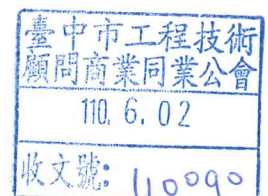 臺中市工程技術
顧問商業同業公會
110. 6. 02
收文號: 110090